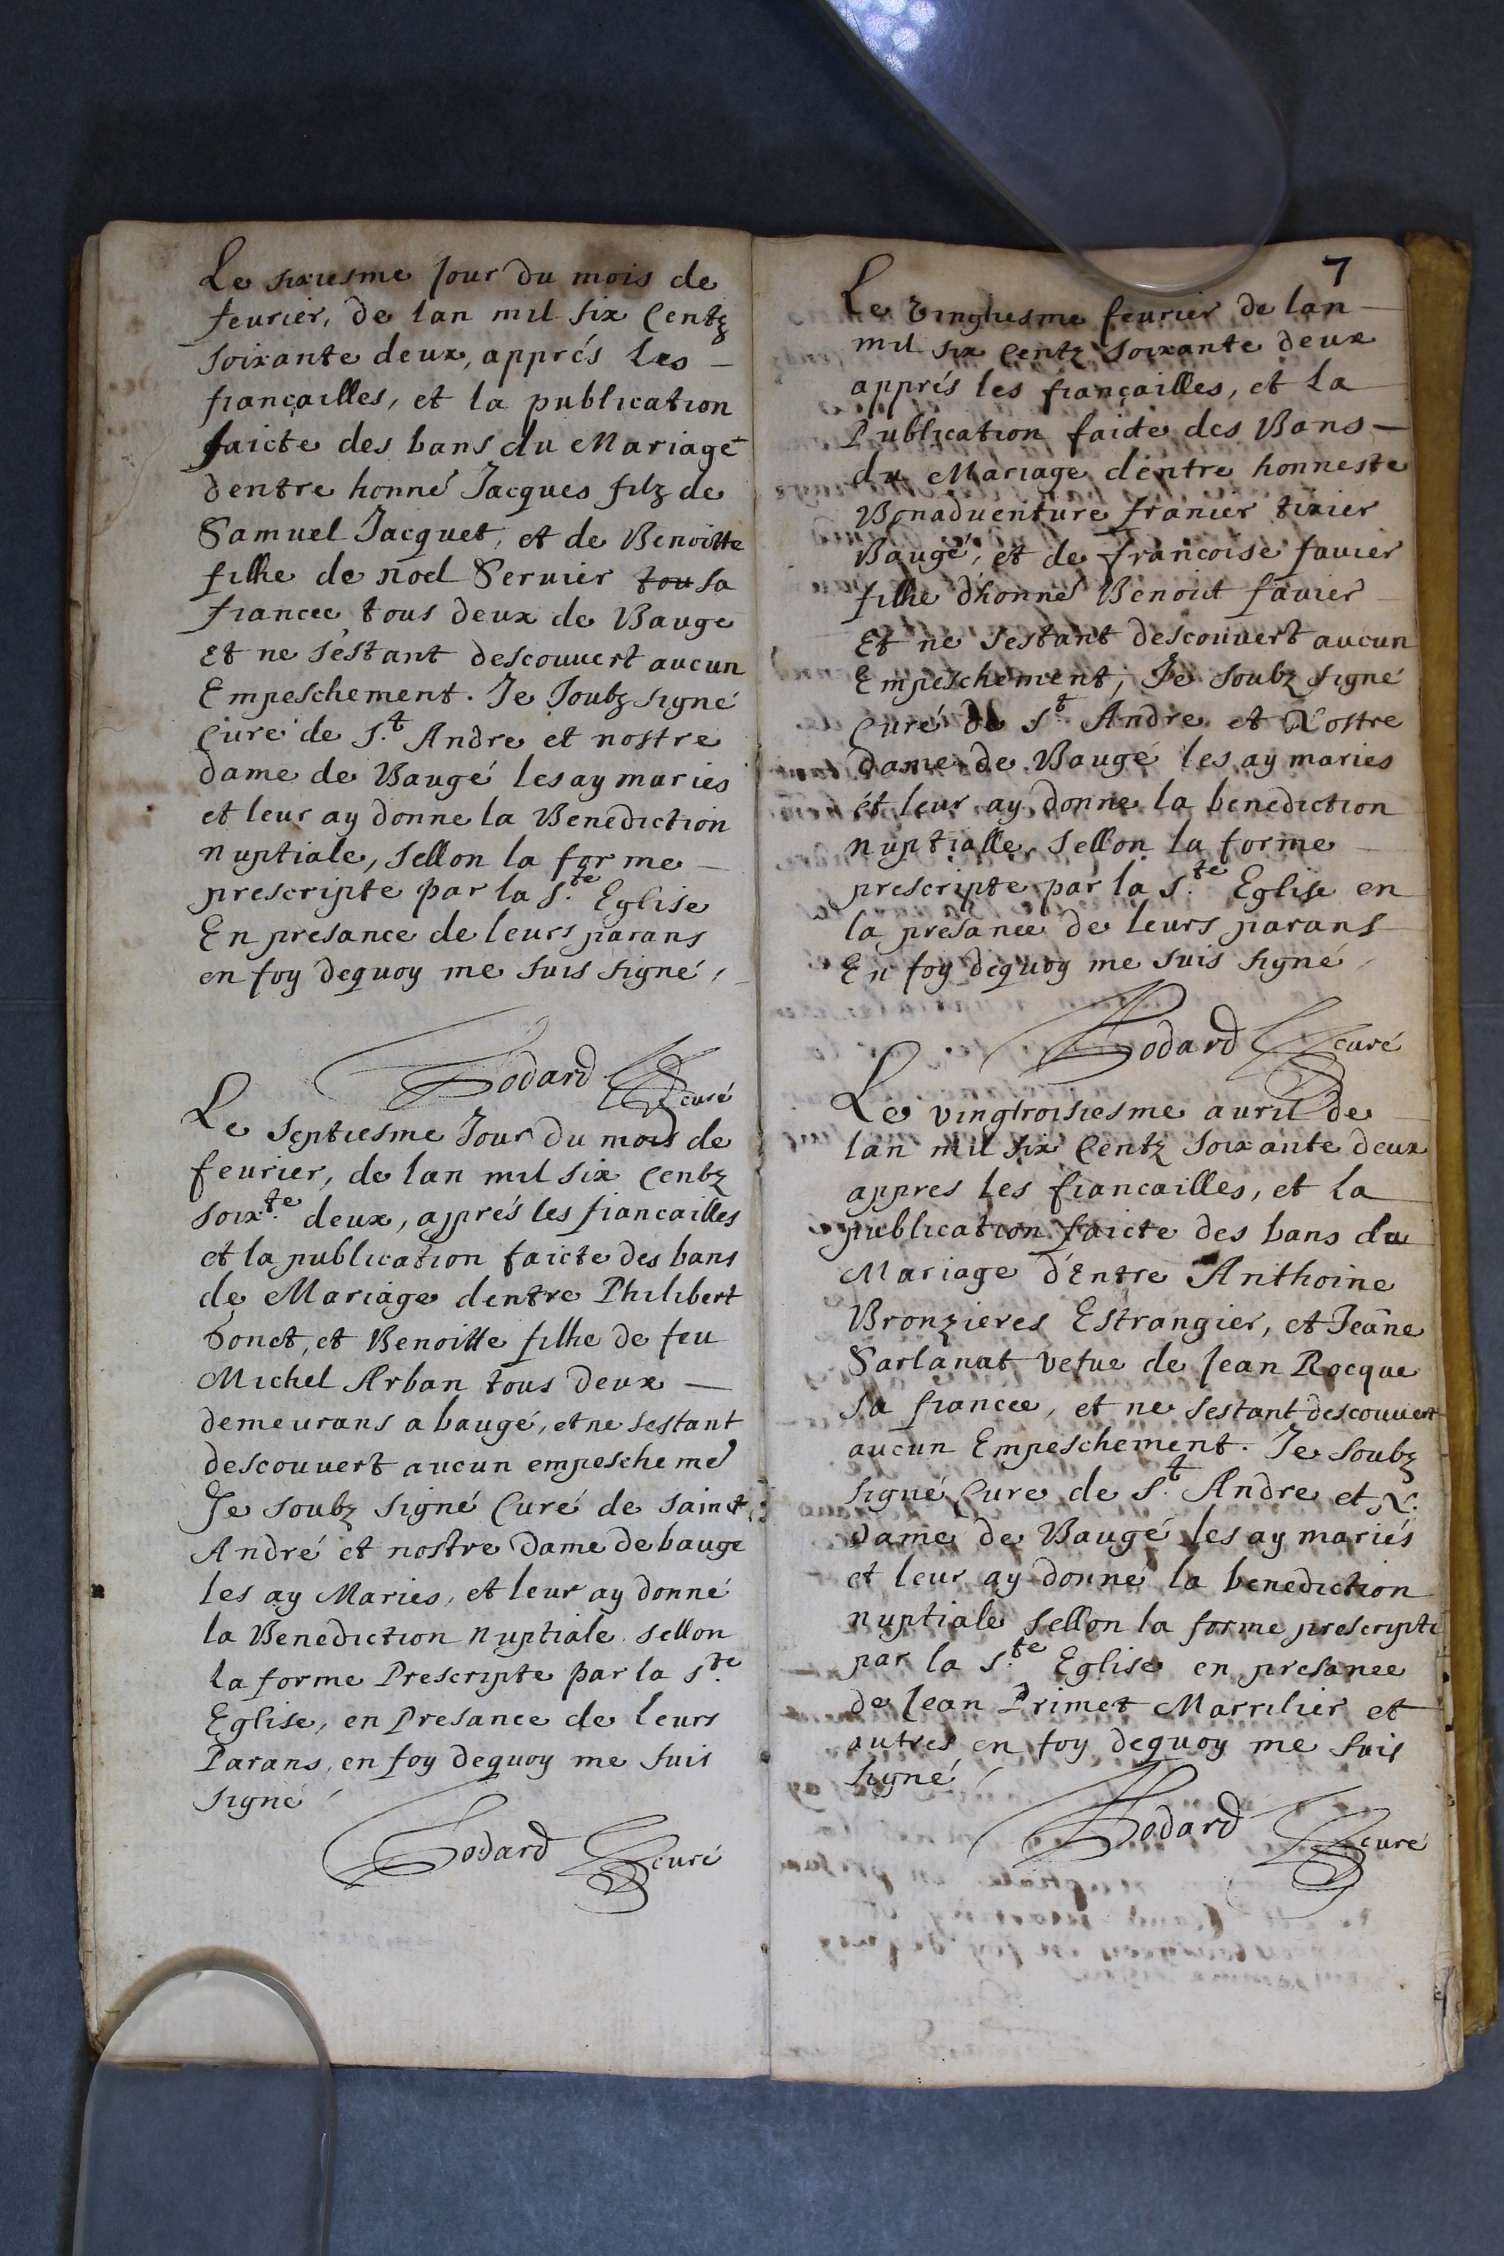 Le sixiesme Jour du mois de
feurier, de lan mil six Centz
soixante deux, apprés les
fiançailles, et la publication
faicte des bans du Mariage
dentre honné Jacques filz de
Samuel Jacquet, et de Benoitte
filhe de noel Seruier tou sa
fiancee tous deux de Bauge
et ne s'estant descouuert aucun
Empeschement. Je soubz signé
Curé de S.t Andre et nostre
dame de Baugé les ay maries
et leur ay donne la Benediction
nuptiale, sellon la forme
prescripte par la S.te Eglise
En presance de leurs parans
en foy dequoy me suis signé,
Godard curé
Le septiesme Jour du mois de
feurier, de lan mil six Centz
soix.te deux, apprés les fiancailles
et la publication faicte des bans
de Mariage dentre Philibert
Donet, et Benoitte filhe de feu
Michel Arban tous deux
demeurans a baugé, et ne sestant
descouuert aucun empescheme
Je soubz signé Curé de sainct
André et nostre Dame de bauge
les ay Maries, et leur ay donné
la Benediction nuptiale sellon
la forme Prescripte par la S.te
Eglise, en Presance de leurs
Parans, en foy dequoy me suis
signé
Godard curé
7
Le vingtiesme feurier de lan
mil six Centz soixante deux
apprés les fiançailles, et la
Publication faicte des Bans
du Mariage dentre honneste
Bonaduenture franier tixier
Baugé, et de francoise fauier
filhe d'honne Benoict fauier
Et ne sestant descouuert aucun
Empeschement, Je soubz signé
Curé de S.t Andre et Nostre
dame de Baugé les ay maries
et leur ay donne la benediction
nuptialle, sellon la forme
prescripte par la S.te Eglise en
la presance de leurs parans
En foy dequoy me suis signé
Godard curé
Le vingtroisiesme auril de
lan mil six Centz soixante deux
appres les fiancailles, et la
publication faicte des bans du
Mariage d'Entre Anthoine
Bronzieres Estrangier, et Jeane
Sarlanat vefue de Jean Rocque
sa fiancée, et ne sestant descouuert
aucun Empeschement. Je soubz
signé Cure de S.t Andre et N.
dame de Baugé les ay mariés
et leur ay donné la benediction
nuptiale sellon la forme prescripte
par la S.te Eglise en presance
de Jean Primet Marrilier et
autres en foy dequoy me suis
signé
Godard curé